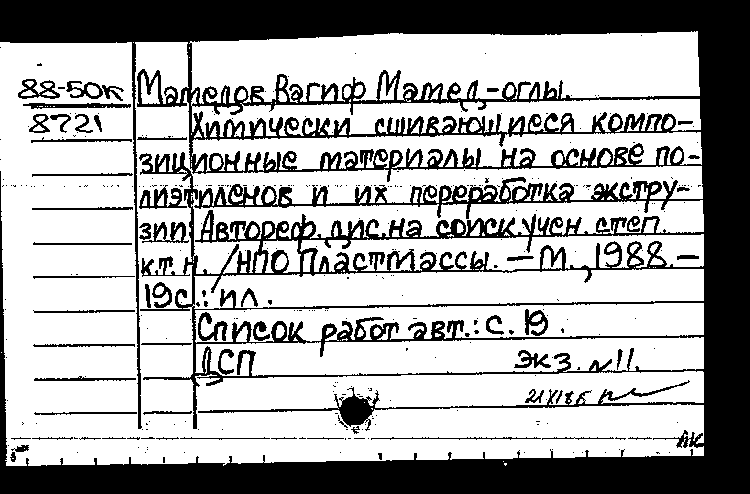 88-50к Мамедов, Вагиф Мамед,-оглы.
8721 Химически сшивающиеся компо-
зиционные материалы на основе по-
лиэтиленов и их переработка экстру-
зии: Автореф. дис. на соиск. учен. степ.
к.т.н. /НПО Пластмассы. — М., 1988. —
19с.: ил.
Список работ авт.: с. 19.
ДСП экз. N11.
АК